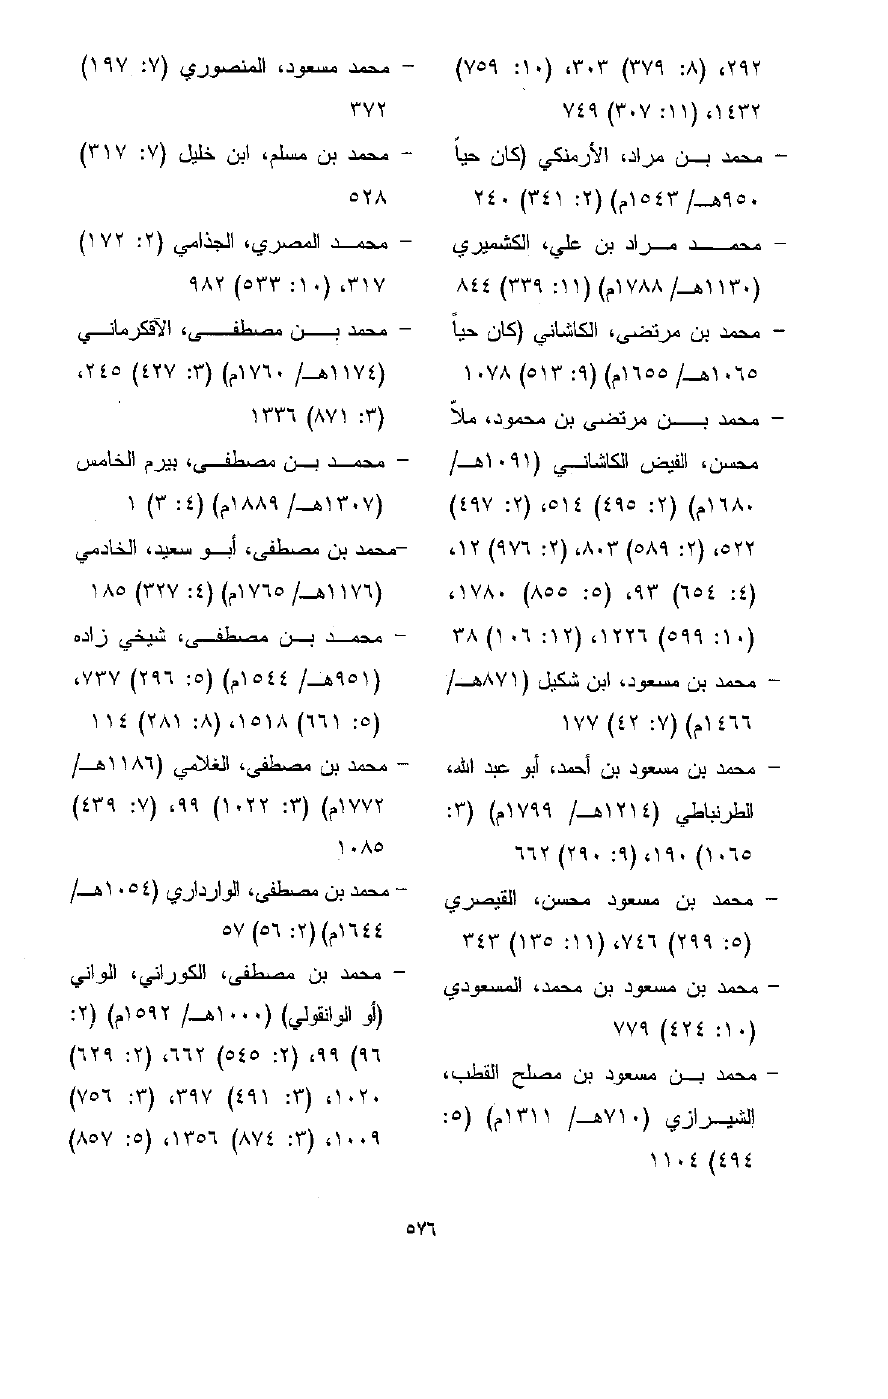 ٢٩٢، (٨: ٣٧٩) ٣٠٣، (١٠: ٧٥٩)
١٤٣٢، (١١: ٣٠٧) ٧٤٩
- محمد بن مراد، الأرمنكي (كان حياً
٩٥٠هـ/ ١٥٤٣م) (٢: ٣٤١) ٢٤٠
- محمد مراد بن علي، الكشميري
(١١٣٠هـ/ ١٧٨٨م) (١١: ٣٣٩) ٨٤٤
- محمد بن مرتضى، الكاشاني (كان حياً
١٠٦٥هـ/ ١٦٥٥م) (٩: ٥١٣) ١٠٧٨
- محمد بن مرتضى بن محمود، ملاّ
محسن، الفيض الكاشاني (١٠٩١هـ/
١٦٨٠م) (٢: ٤٩٥) ٥١٤، (٢: ٤٩٧)
٥٢٢، (٢: ٥٨٩) ٨٠٣، (٢: ٩٧٦) ١٢،
(٤: ٦٥٤) ٩٣، (٥: ٨٥٥) ١٧٨٠،
(١٠: ٥٩٩) ١٢٢٦، (١٢: ١٠٦) ٣٨
- محمد بن مسعود، ابن شكيل (٨٧١هـ/
١٤٦٦م) (٧: ٤٢) ١٧٧
- محمد بن مسعود بن أحمد، أبو عبد الله،
الطرنباطي (١٢١٤هـ/ ١٧٩٩م) (٣:
١٠٦٥) ١٩٠، (٩: ٢٩٠) ٦٦٢
- محمد بن مسعود محسن، القيصري
(٥: ٢٩٩) ٧٤٦، (١١: ١٣٥) ٣٤٣
- محمد بن مسعود بن محمد، المسعودي
(١٠: ٤٢٤) ٧٧٩
- محمد بن مسعود بن مصلح القطب،
الشيرازي (٧١٠هـ/ ١٣١١م) (٥:
٤٩٤) ١١٠٤
- محمد مسعود، المنصوري (٧: ١٩٧)
٣٧٢
- محمد بن مسلم، ابن خليل (٧: ٣١٧)
٥٢٨
- محمد المصري، الجذامي (٢: ١٧٢)
٣١٧، (١٠: ٥٣٣) ٩٨٢
- محمد بن مصطفى، الآقكرماني
(١١٧٤هـ/ ١٧٦٠م) (٣: ٤٢٧) ٢٤٥،
(٣: ٨٧١) ١٣٣٦
- محمد بن مصطفى، بيرم الخامس
(١٣٠٧هـ/ ١٨٨٩م) (٤: ٣) ١
-محمد بن مصطفى، أبو سعيد، الخادمي
(١١٧٦هـ/ ١٧٦٥م) (٤: ٣٢٧) ١٨٥
- محمد بن مصطفى، شيخي زاده
(٩٥١هـ/ ١٥٤٤م) (٥: ٢٩٦) ٧٣٧،
(٥: ٦٦١) ١٥١٨، (٨: ٢٨١) ١١٤
- محمد بن مصطفى، الغلامي (١١٨٦هـ/
١٧٧٢م) (٣: ١٠٢٢) ٩٩، (٧: ٤٣٩)
١٠٨٥
- محمد بن مصطفى، الوارداري (١٠٥٤هـ/
١٦٤٤م) (٢: ٥٦) ٥٧
- محمد بن مصطفى، الكوراني، الواني
(أو الوانقولي) (١٠٠٠هـ/ ١٥٩٢م) (٢:
٩٦) ٩٩، (٢: ٥٤٥) ٦٦٢، (٢: ٦٢٩)
١٠٢٠، (٣: ٤٩١) ٣٩٧، (٣: ٧٥٦)
١٠٠٩، (٣: ٨٧٤) ١٣٥٦، (٥: ٨٥٧)
٥٧٦